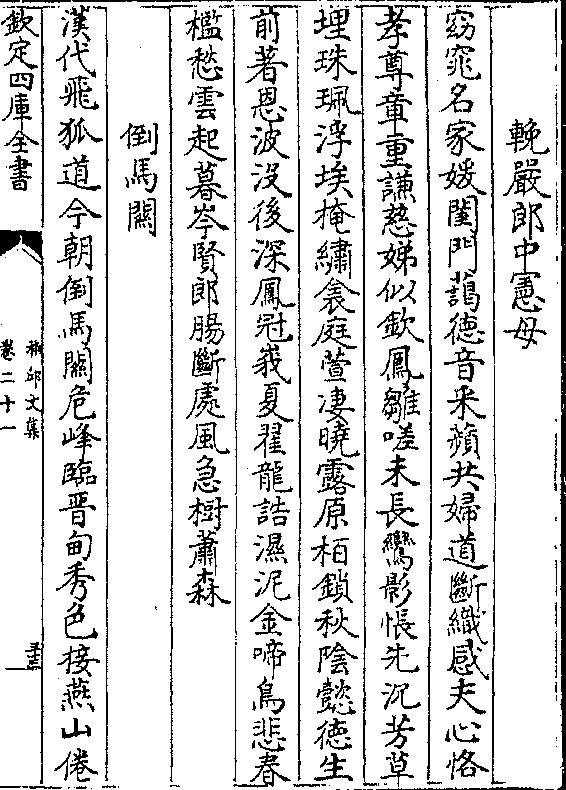 輓嚴郎中憲母
窈窕名家媛閨門藹德音采蘋共婦道斷織感夫心恪
孝尊章重謙慈娣似欽鳳雛嗟未長鸞影悵先沉芳草
埋珠珮浮埃掩繡衾庭萱凄曉露原栢鎖秋陰懿德生
前著恩波沒後深鳳冠峩夏翟龍誥濕泥金啼鳥悲春
檻愁雲起暮岑賢郎腸斷處風急樹蕭森
倒馬關
漢代飛狐道今朝倒馬關危峰臨晉甸秀色接燕山倦
欽定四庫全書
卷二十一